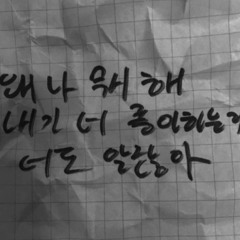 왜 나 무시해
내가 너 좋아하는거
너도 알잖아